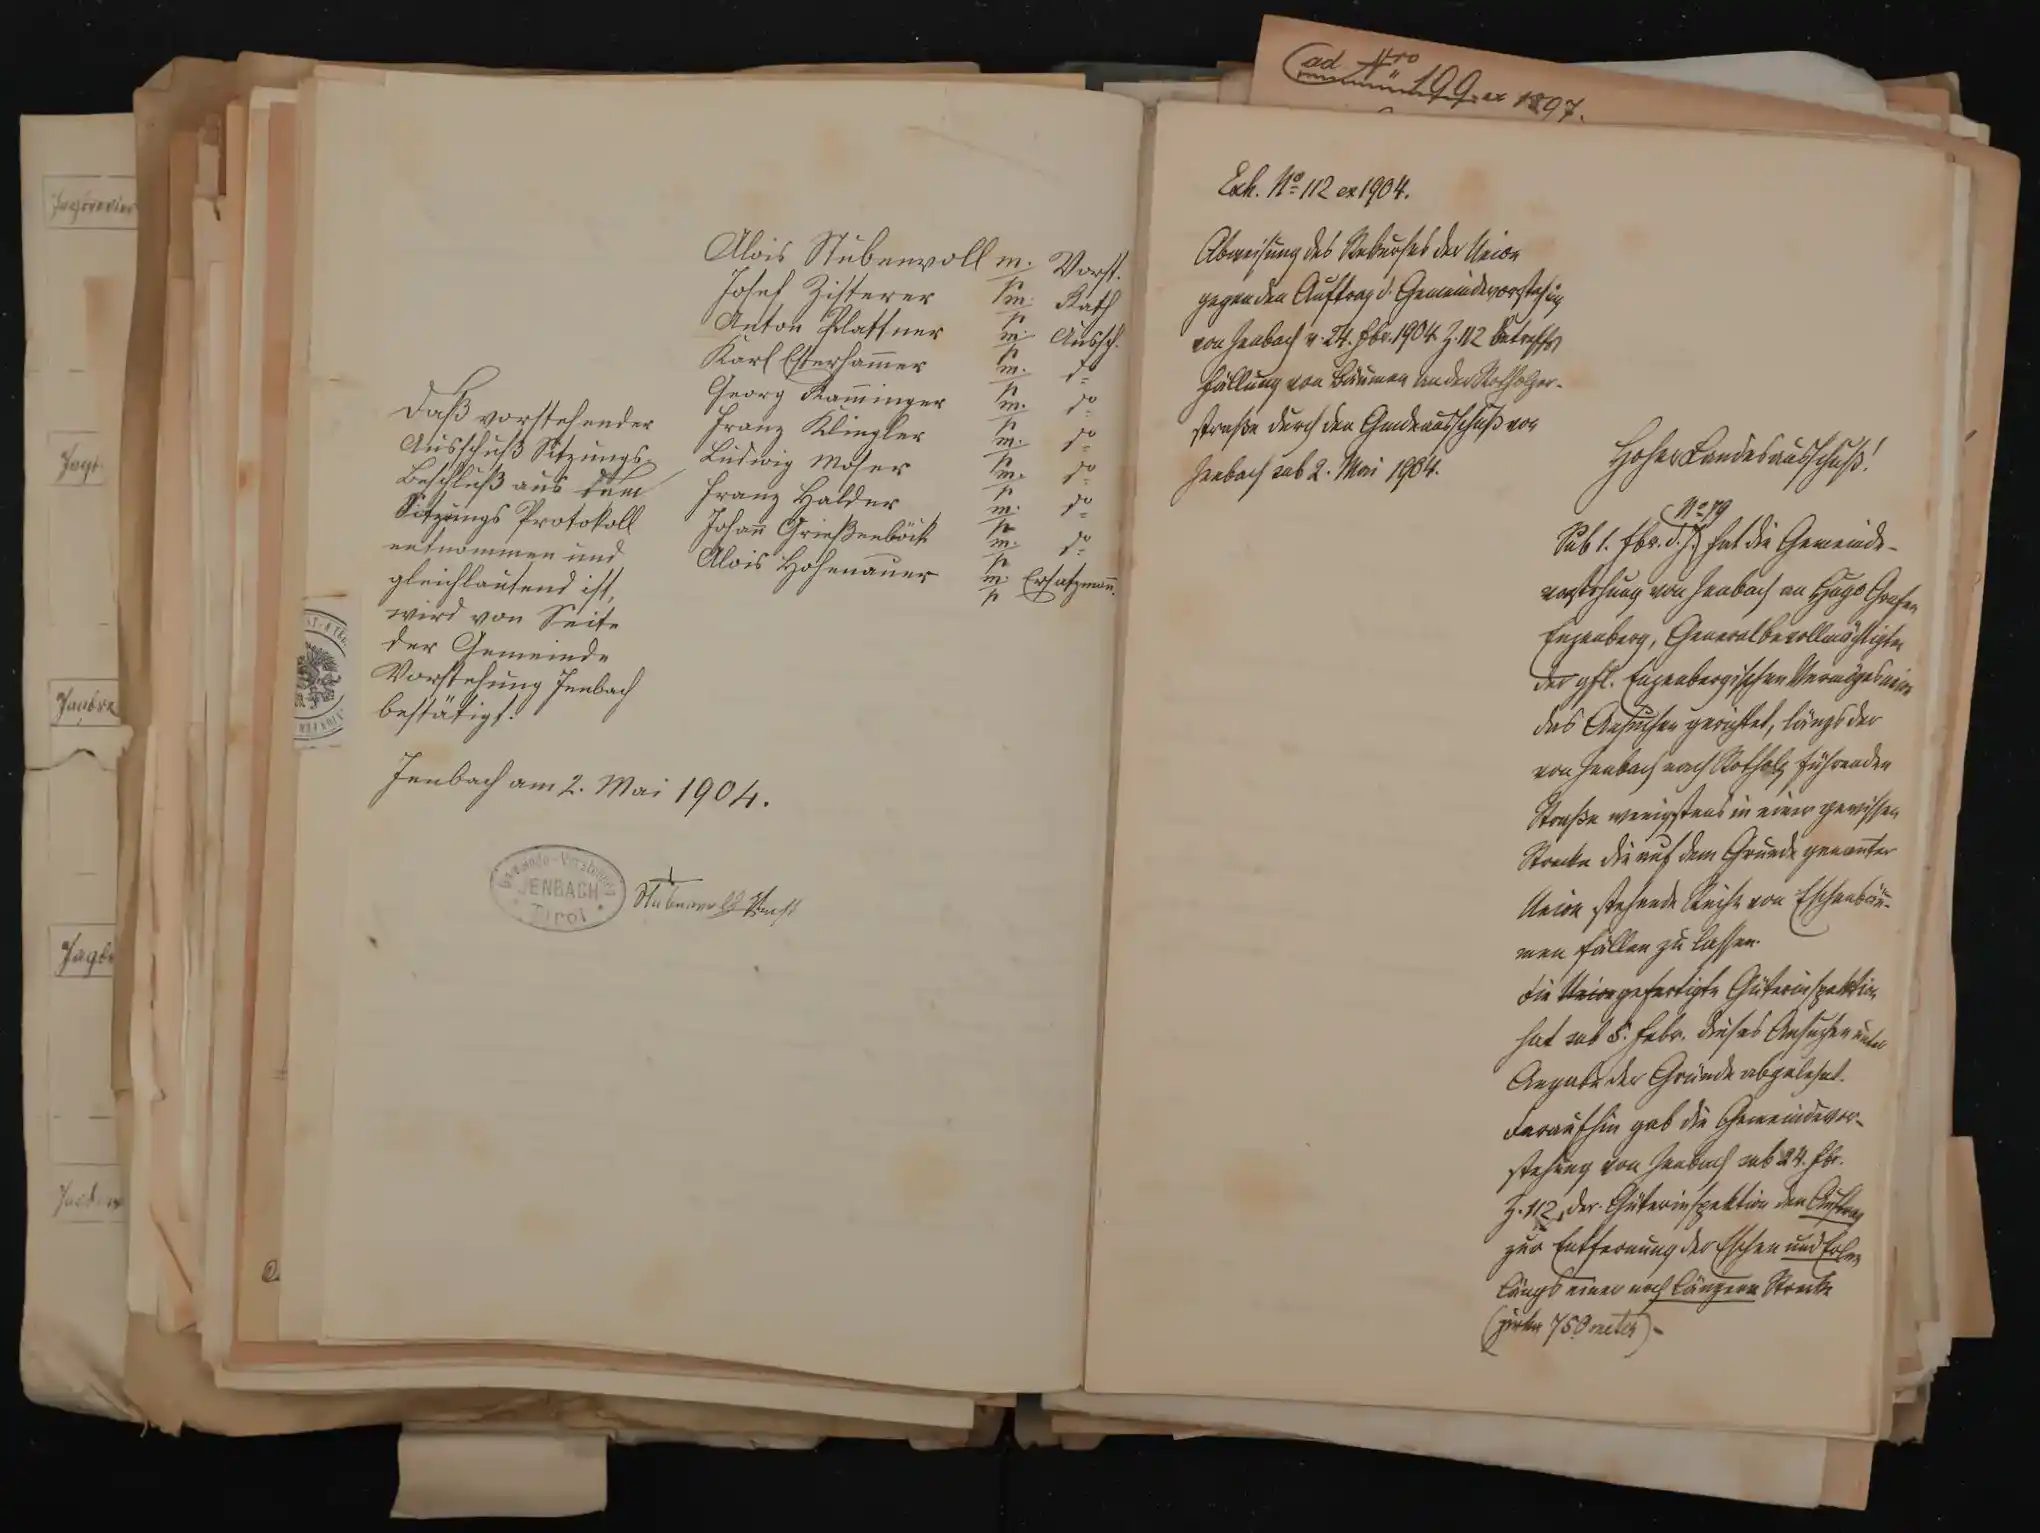 Alois Stubenvoll m/p Vorst.
Josef Zisterer m/p Rath
Anton Plattner m/p Aussch.
Karl Esterham̄er m/p do
Georg Ram̄inger m/p do
Franz Klingler m/p do
Ludwig Moser m/p do
Franz Halder m/p do
Johan̄ Grießenböck m/p do
Alois Hohenauer m/p Ersatzman̄.
Daß vorstehender
Ausschuß Sitzungs-
Beschluß aus dem
Sitzungs Protokoll
entnommen und
gleichlautend ist,
wird von Seite
der Gemeinde
Vorstehung Jenbach
bestätigt.
Jenbach am 2. Mai 1904.
Gemeinde-Vorstehung
JENBACH
Tirol
Stubenvoll Vorst
ad Nro 199 ex 1897.
Exh. No 112 ex 1904.
Abweisung des Rekurses der Union
gegen den Auftrag d. Gemeindevorstehung
von Jenbach v. 24. Febr. 1904 Z. 112 betreffs
Fällung von Bäumen an der Rotholzer-
straße durch den Gmdeausschuß von
Jenbach sub 2. Mai 1904.
Hoher Landesausschuß!
No 79
Sub 1. Febr. d. J. hat die Gemeinde-
vorstehung von Jenbach an Hugo Grafen
Enzenberg, Generalbevollmächtigten
der gfl. Enzenbergischen Vermögensunion
das Ansuchen gerichtet, längs der
von Jenbach nach Rotholz führenden
Straße wenigstens in einer gewissen
Strecke die auf dem Grunde genannter
Union stehende Reihe von Eschenbäu-
men fällen zu lassen.
Die gefertigte Güterinspektion
hat sub 5. Febr. dieses Ansuchen unter
Angabe der Gründe abgelehnt.
Daraufhin gab die Gemeindevor-
stehung von Jenbach sub 24. Febr.
Z. 112, der Güterinspektion den Auftrag
zur Entfernung der Eschen und Erlen
längs einer noch längern Strecke
(zirka 750 meter) -